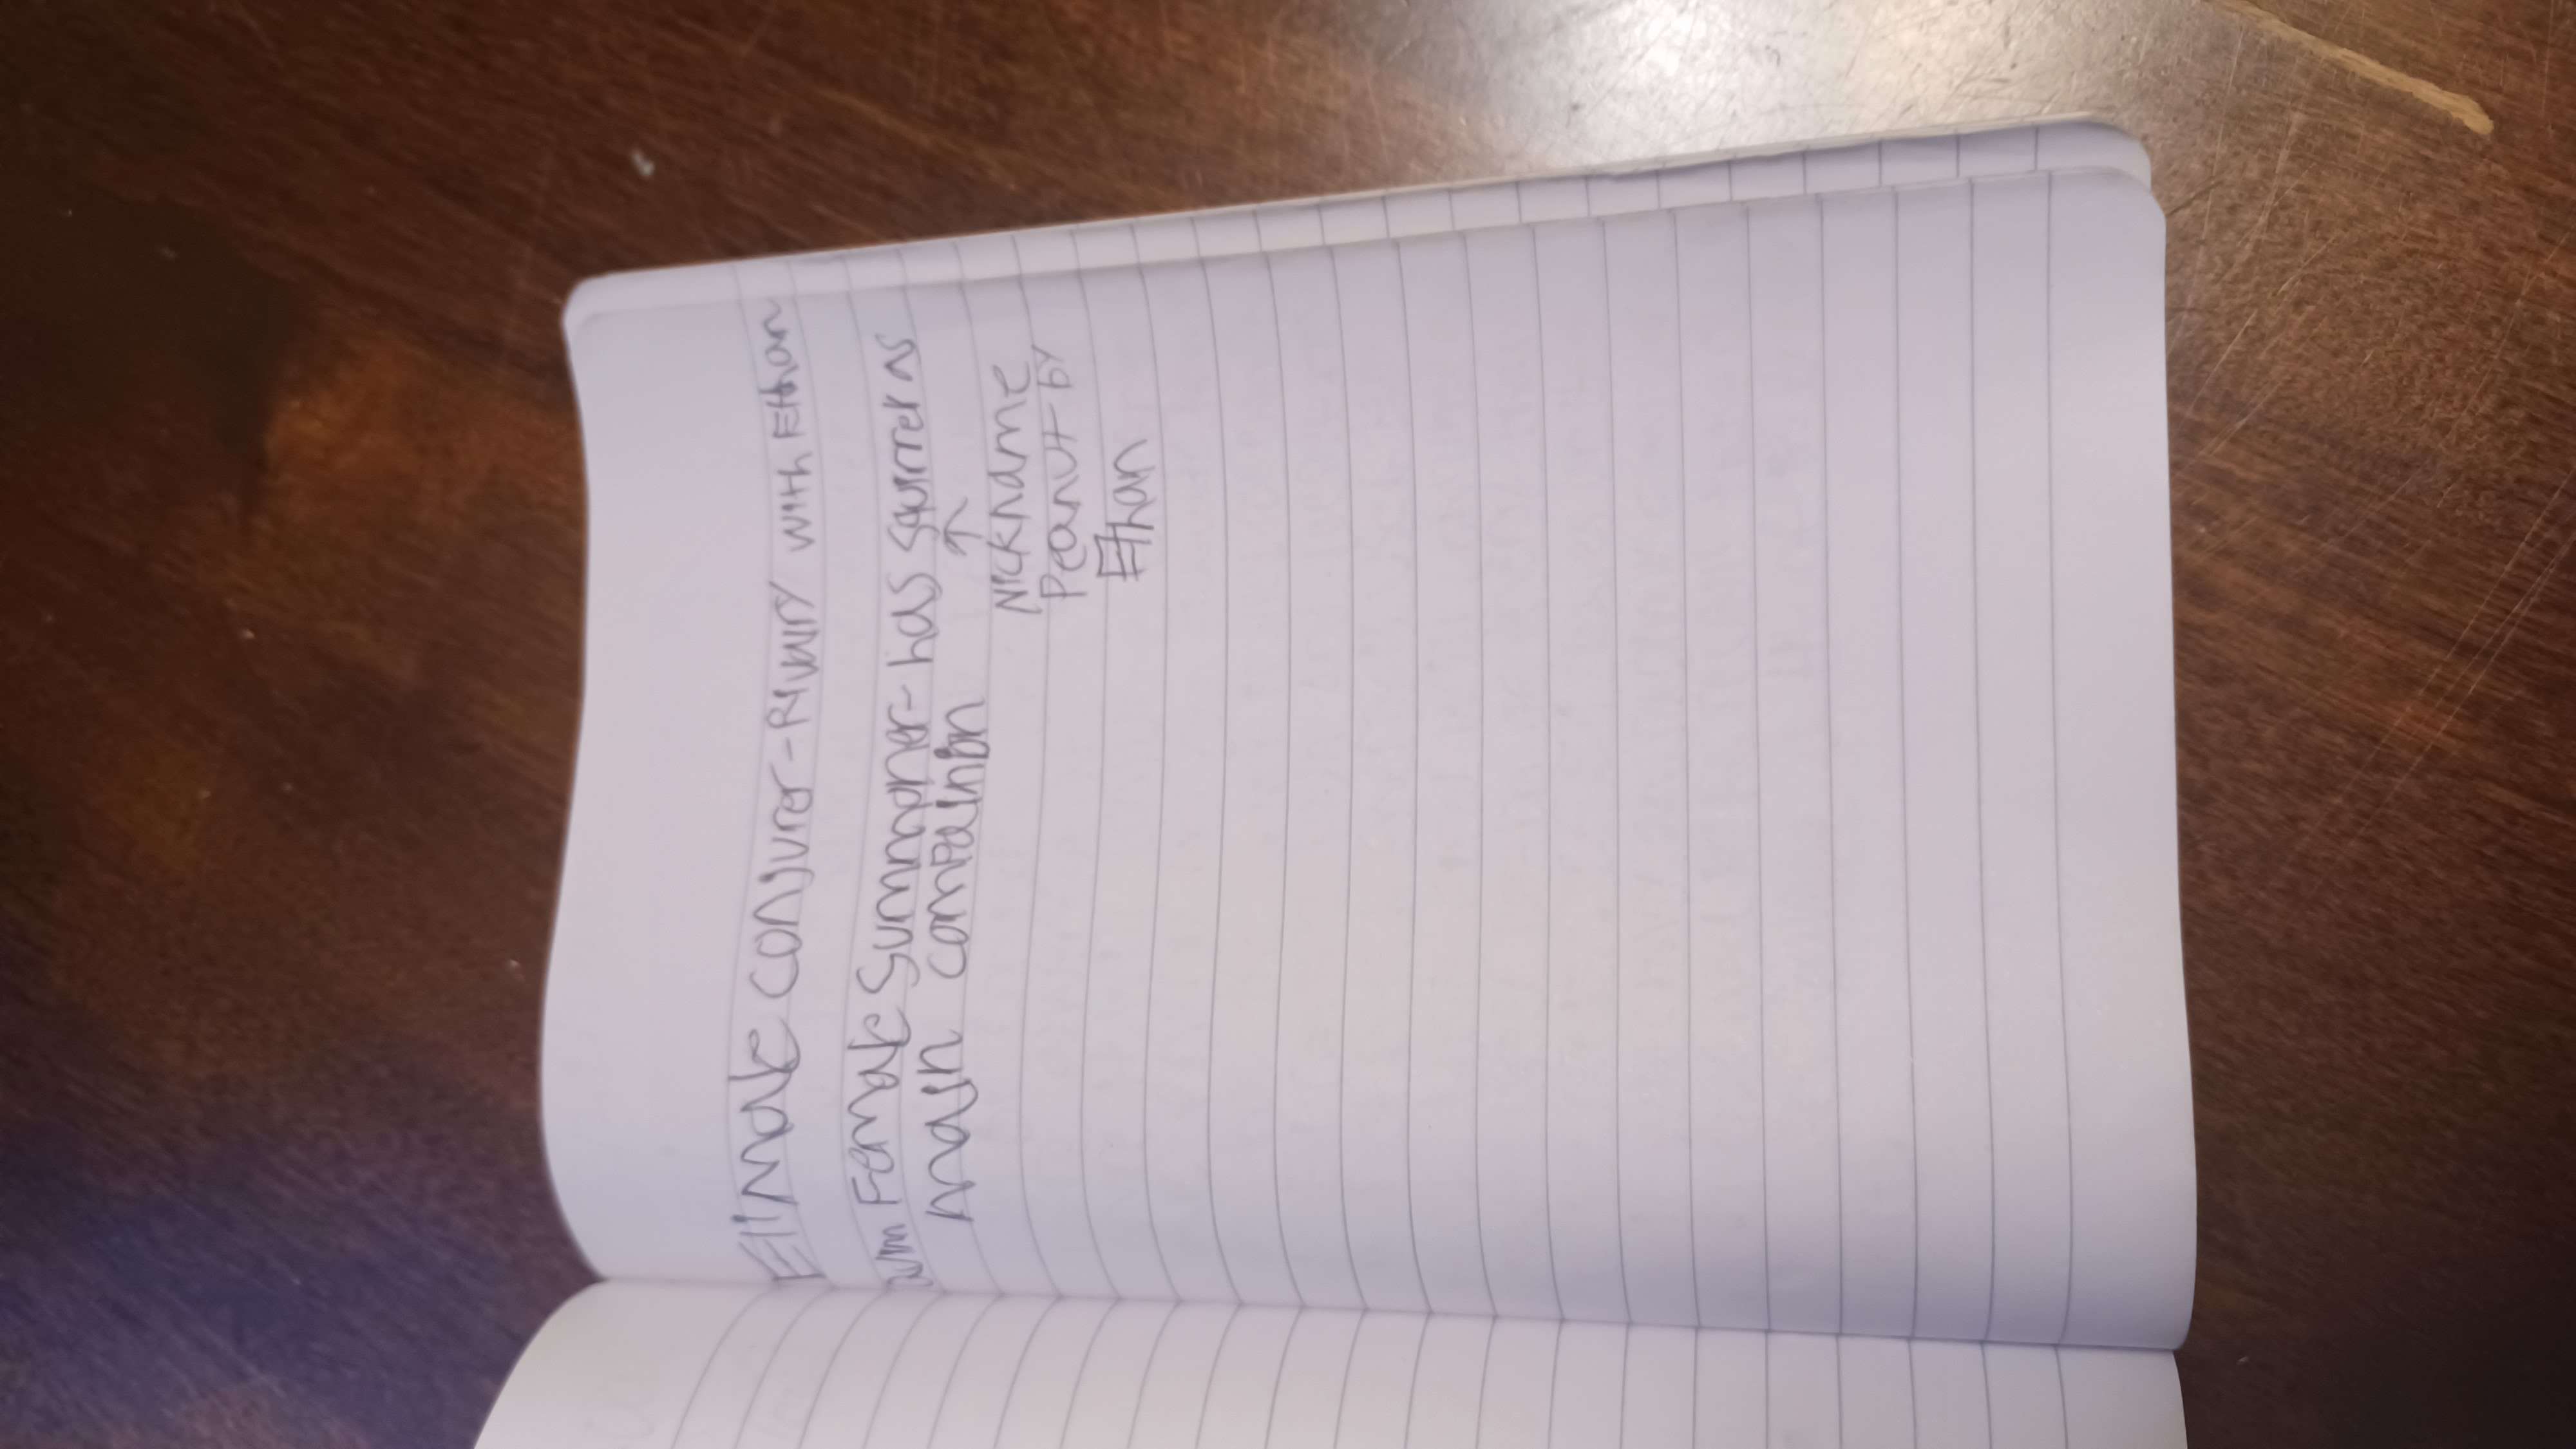 Eli Male conjurer - Rivalry with Ethan
Female Summoner - has squirrel as
main compainion
↑
Nickname
Peanut by
Ethan